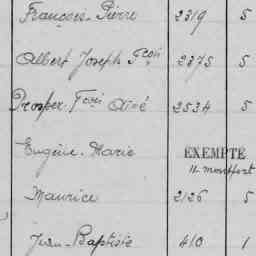 François-Pierre 2319 5
Albert Joseph Fçois 2375 5
Prosper Fçois Aimé 2534 5
Eugène-Marie EXEMPTÉ
11 montfort
Maurice 2126 5
Jean-Baptiste 410 1